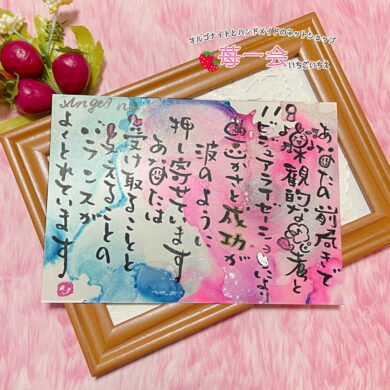 オルゴナイトとハンドメイドのネットショップ
苺一会
いちごいちえ
Angel
あなたの前向きで
楽観的な思考と
豊かさと成功が
波のように
押し寄せています
あなたは
受け取ることと
与えることの
バランスが
よくとれています